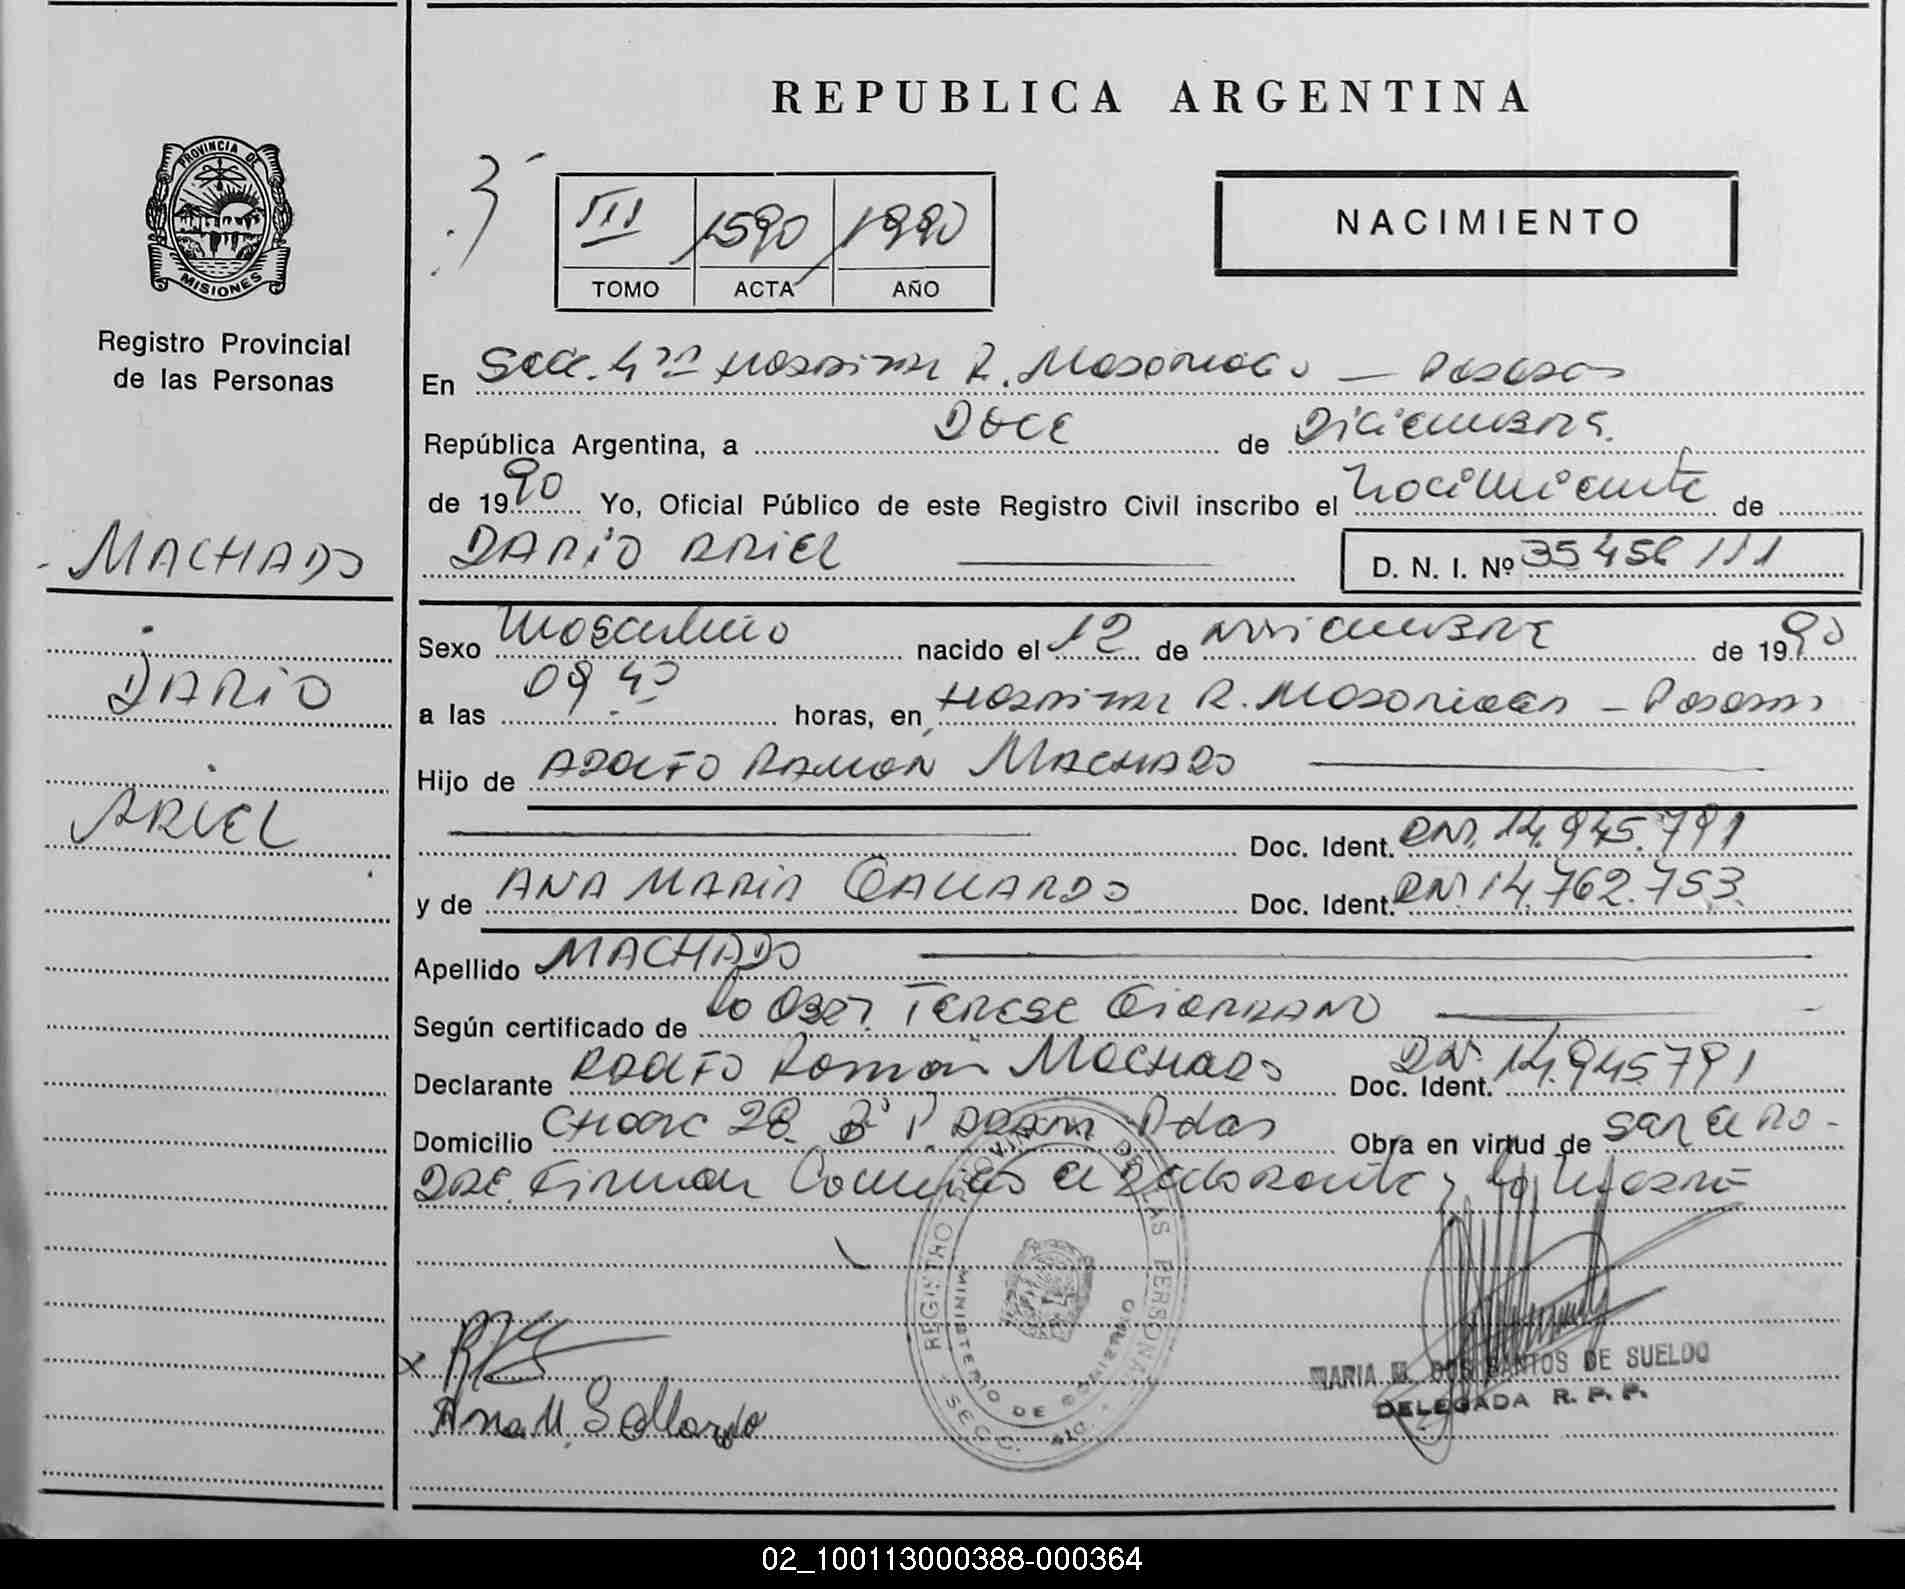 REPUBLICA ARGENTINA
PROVINCIA DE
MISIONES
Registro Provincial
de las Personas
III 1590 1990
TOMO ACTA AÑO
NACIMIENTO
En Secc. 4ta Hospital R. Madariaga — Posadas
República Argentina, a DOCE de Diciembre.
de 1990 Yo, Oficial Público de este Registro Civil inscribo el nacimiento de
DARIO ARIEL D. N. I. Nº 35456111
MACHADO
DARIO
ARIEL
Sexo Masculino nacido el 12 de Noviembre de 1990
a las 09 40 horas, en Hospital R. Madariaga — Posadas
Hijo de ADOLFO RAMON MACHADO
Doc. Ident. DNI. 14.945.791
y de ANA MARIA GALLARDO Doc. Ident. DNI 14.762.753
Apellido MACHADO
Según certificado de la Obst. TERESA GIORDANO
Declarante ADOLFO Ramón MACHADO Doc. Ident. DNI. 14.945791
Domicilio CHACRA 28 Pdas Obra en virtud de ser el PA-
DRE. Firman Conmigo el Declarante y la Madre
REGISTRO PROVINCIAL DE LAS PERSONAS
MINISTERIO DE GOBIERNO
SECC. 4ta.
Ana M. Gallardo
MARIA M. DOS SANTOS DE SUELDO
DELEGADA R. P. P.
02_100113000388-000364